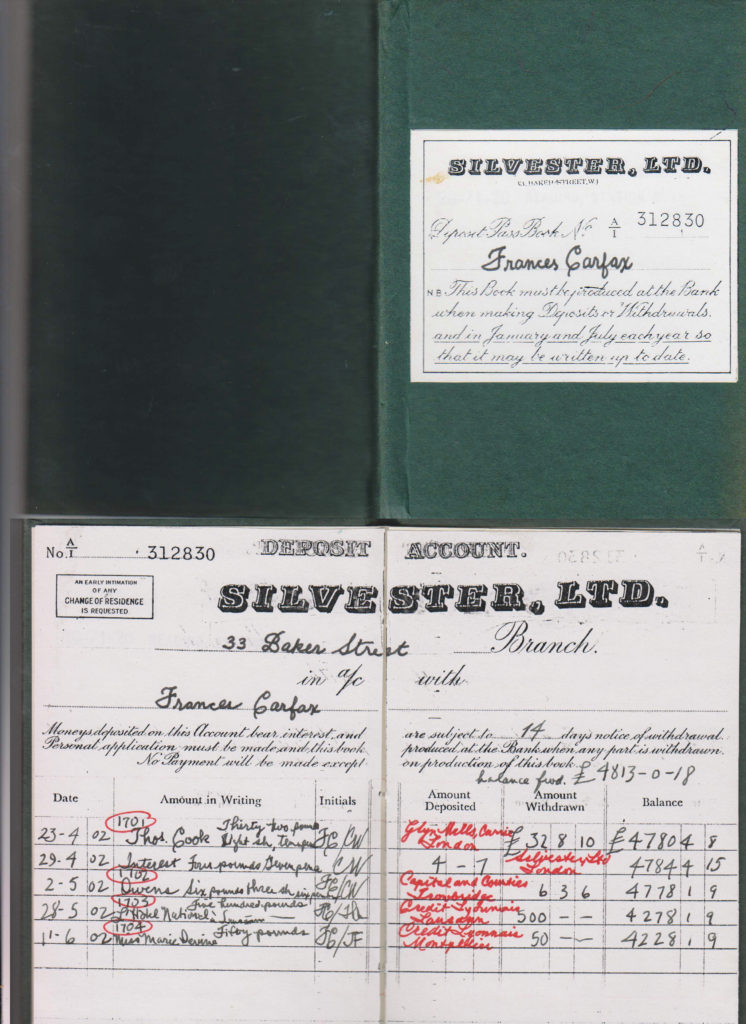 SILVESTER, LTD.
Deposit Pass Book No. A/1 312830
Frances Carfax
N B This Book must be produced at the Bank
when making Deposits or Withdrawals.
and in January and July each year so
that it may be written up to date.
No. A/1 312830 DEPOSIT ACCOUNT.
AN EARLY INTIMATION
OF ANY
CHANGE OF RESIDENCE
IS REQUESTED
SILVESTER, LTD.
33 Baker Street Branch.
in a/c with
Frances Carfax
Moneys deposited on this Account bear interest, and are subject to 14 days notice of withdrawal.
Personal application must be made and this book produced at the Bank when any part is withdrawn.
No Payment will be made except on production of this book.
balance fwd. £ 4813-0-18
Date Amount in Writing Initials Amount Deposited Amount Withdrawn Balance
1701
23-4 02 Thos. Cook Thirty two pounds Eight sh, tenpence FC/CW Glyn Mills, Currie London £ 32 8 10 £ 4780 4 8
29-4 02 Interest Four pounds Sevenpence CW 4 - 7 Silvester Ltd London 4784 4 15
1702
2-5 02 Owens Six pounds three sh sixpence FC/CW Capital and Counties 6 3 6 4778 1 9
1703
28-5 02 Hotel National Five hundred pounds Credit Lyonnais 500 - - 4278 1 9
1704
11-6 02 Miss Marie Devine Fifty pounds FC/JF Credit Lyonnais Montpellier 50 - - 4228 1 9